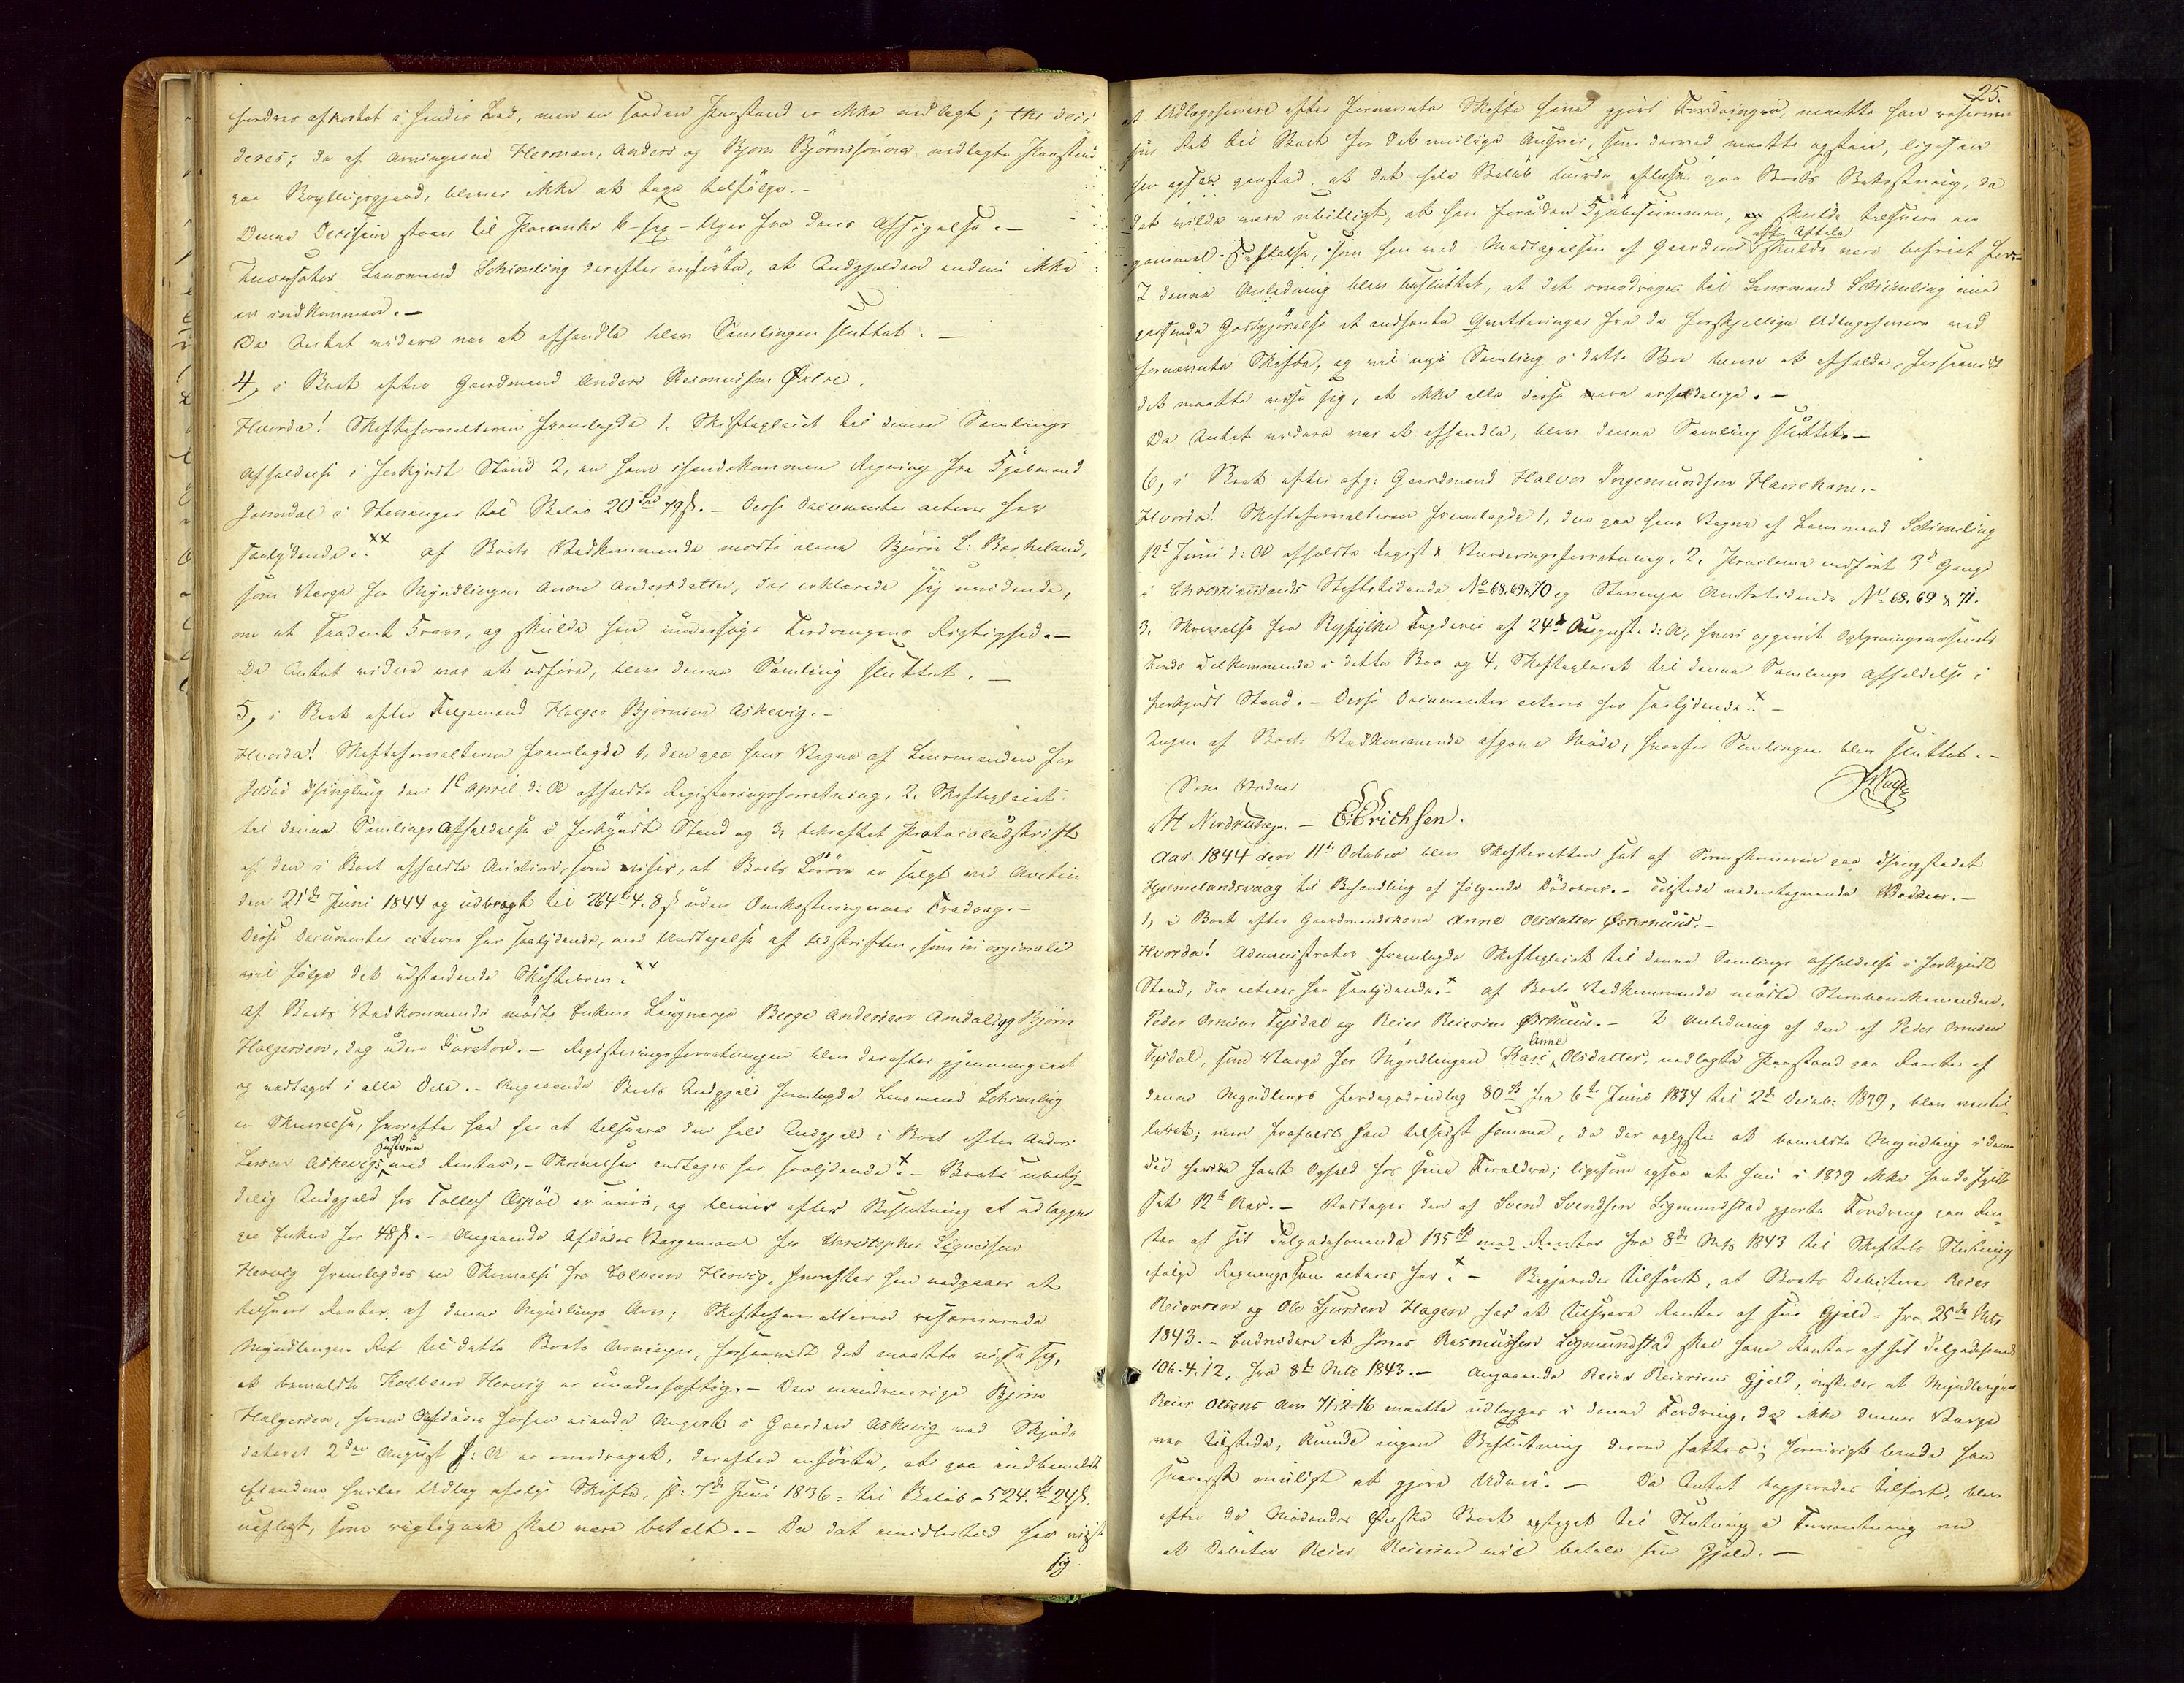 fordres afkortet i hendes Lod, men en saadan Paastand er ikke nedlagt; thi deci-
deres; de af Arvingerne Herman, Anders og Bjørn Bjørnssønner nedlagte Paastand
paa Bryllupsgjærd, bliver ikke at tage tilfølge.-
Denne Decision staaer til Paaanke 6-sex-Uger fra dens Afsigelse.-
Lensmand Schiemling derefter anførte, at Indgjelden endnu ikke
er indkommen.-
Da Intet videre var at afhandle blev Samlingen sluttet.-
4, i Boet efter Gaardmand Anders Rasmussen Østre.
Hvorda! Skifteforvalteren fremlagde 1, Skifteplacat til denne Samlings
Afholdelse i forkyndt Stand 2, en ham ihændekommen Regning fra Kjøbmand
i Stavanger til Beløb 20 79 ß.- Disse Documenter acteres her
saalydende:. xx Af Boets Vedkommende mødte alene Bjørn L: Barkeland,
som Værge for Myndlingen Anne Andersdatter, der erklærede sig uvidende,
om et saadant Krav, og skulde han undersøge Fordringens Rigtighed.-
Da Intet videre var at udføre, blev denne Samling sluttet.-
5, i Boet efter Følgemand Holger Bjørnsen Askevig.-
Hvorda! Skifteforvalteren fremlagde 1, den paa hans Vegne af Lensmanden for
Thinglaug den 1e April d: A afholdte Registeringsforretning, 2, Skifteplacat
til denne Samlings Afholdelse i forkyndt Stand og 3, bekræftet Protocoludskrift
af den i Boet afholdte Auction, som viser, at Boets Løsøre er solgt ved Auction
den 21de Juni 1844 og udbragt til 264. 4. 8 ß uden Omkostningernes Fradrag.-
Disse Documenter acteres her saalydende, med Undtagelse af Udskriften, som in orginali
vil følge det udstedende Skiftebrev. xx
Af Boets Vedkommende mødte Enkens Laugværge Børge Andersen Amdal og Bjørn
Holgersen, dog uden Curator.- Registeringsforretningen blev derefter gjennemgaaet
og vedtaget i alle Dele.- Angaaende Boets Indgjæld fremlagde Lensmand Schiemling
en Skrivelse, hvorefter han har at tilsvare den hele Indgjæld i Boet efter Anders
Larsen Askevigs Hustrue med Renter.- Skrivelsen indtages her saalydende: x- Boets ubety-
delig Indgjæld hos Tollef Espøe er uvis, og bliver efter Beslutning at udlægge
paa Enken for 48 ß.- Angaaende Afdødes Værgemaal for Christopher Sigvaldsen
Hervig fremlagdes en Skrivelse fra Colbeen Hervig, hvorefter han vedgaaer at
tilsvare Renter af denne Myndlings Arv; Skifteforvalteren reserverede
Myndlingen Ret til dette Boets Arvinger, forsaavidt det maatte vise sig,
at bemeldte Kolbeen Hervig er uvederhæftig.- Den myndaarige Bjørn
Holgersen, hvem Afdødes forhen eiende Anpart i Gaarden Askevig ved Skjøde
dateret 2den August f: A er overdraget, derefter anførte, at paa indbemeldte
Eiendom hviler Udlæg ifølge Skifte, sl: 7de Juni 1836 - til Beløb - 524. 24 ß.
uaflyst, som rigtignok skal være betalt.- Da det imidlertid har vist
sig

25.
at Udlægshavere efter fornævnte Skifte have gjort Fordringer, maatte han reservere
sin Ret til Boet for det mulige Ansvar, som derved maatte opstaae, ligesom
han ogsaa paastod, at det hele Beløb burde aflyses paa Boets Bekostning, da
det vilde være ubilligt, at han foruden Kjøbesummen, skulde tilsvare en
gammel Hæftelse, som han ved Modtagelsen af Gaarden efter Aftale skulde være befriet for.-
I denne Anledning blev besluttet, at det overdrages til Lensmand Schiemling imod
passende Godtgjørelse at indhente Qvitteringer fra de forskjellige Udlægshavere ved
fornævnte Skifte, og vil nye Samling i dette Boe blive at afholde, forsaavidt
det maatte vise sig, at ikke alle disse vare erholdelige.-
Da Intet videre var at afhandle, blev denne Samling sluttet.-
6, i Boet efter afg: Gaardmand Halvor Ingemundsen Hauskam.-
Hvorda! Skifteforvalteren fremlagde 1, den paa hans Vegne af Lensmand Schiemling
12t Juni d: A afholdte Regist & Vurderingsforretning, 2, Proclama indført 3de Gange
i Christiansands Stiftstidende No 68. 69 & 70 og Stavanger Amtstidende No 68. 69 & 71.
3, Skrivelse fra Ryfylke Fogderie af 24de August d: A, hvori opgivet Oplysningsvæsenets
Fonds Tilkommende i dette Boe og 4, Skifteplacat til denne Samlings Afholdelse i
forkyndt Stand.- Disse Documenter acteres her saalydende: x-
Ingen af Boets Vedkommende afgave Møde, hvorfor Samlingen blev sluttet.-
Som Vidner
M Nordtunge.- E. Erichsen.
Aar 1844 den 11te October blev Skifteretten sat af Sorenskriveren paa Thingstedet
Hjelmelandsvaag til Behandling af følgende Dødsboer.- Tilstede undertegnende Vidner.-
1, i Boet efter Gaardmandskone Anne Olsdatter Østerhuus.-
Hvorda! Administrator fremlagde Skifteplacat til denne Samlings Afholdelse i forkyndt
Stand, der acteres her saalydende: x- Af Boets Vedkommende mødte Stervboenkemanden,
Peder Ormsen Tysdal og Reier Reiersen Østhuus.- I Anledning af den af Peder Ormsen
Tysdal, som Værge for Myndlingen Kari Anne Olsdatter, nedlagte Paastand paa Renter af
denne Myndlings Fædrearvslod 80 fra 6te Juni 1834 til 2de Decbr: 1839, blev venti-
leret; men frafaldt han tilsidst samme, da der oplystes at bemeldte Myndling i denne
Tid havde havt Ophold hos sine Forældre; ligesom ogsaa at hun i 1839 ikke havde fyldt
sit 12te Aar.- Vedtages den af Svend Svendsen Sigmundstad gjorte Fordring paa Ren-
ter af sit Tilgodehavende 135 med Renter fra 8de Mts 1843 til Skiftets Slutning
ifølge Regning som acteres her: x- Begjæredes tilført, at Boets Debitorer Reier
Reiersen og Ole Sjursen Hagen har at tilsvare Renter af sin Gjæld - fra 25de Mts
1843.- Endvidere at Jonas Rasmussen Sigmundstad skal have Renter af sit Tilgodehavende
106. 4. 12, fra 8de Mts 1843.- Angaaende Reier Reiersens Gjæld, ønskedes at Myndlingen
Reier Olsens Arv 71. 2. 16 maatte udlægges i denne Fordring, da ikke dennes Værge
var tilstede, kunde ingen Beslutning derom fattes; forøvrigt burde han
snarest muligt at gjøre Udvei.- Da Intet begjæredes tilført, blev
efter de Mødendes Ønske Boet optaget til Slutning i Forventning om
at Debitor Reier Reiersen vil betale sin Gjæld.-